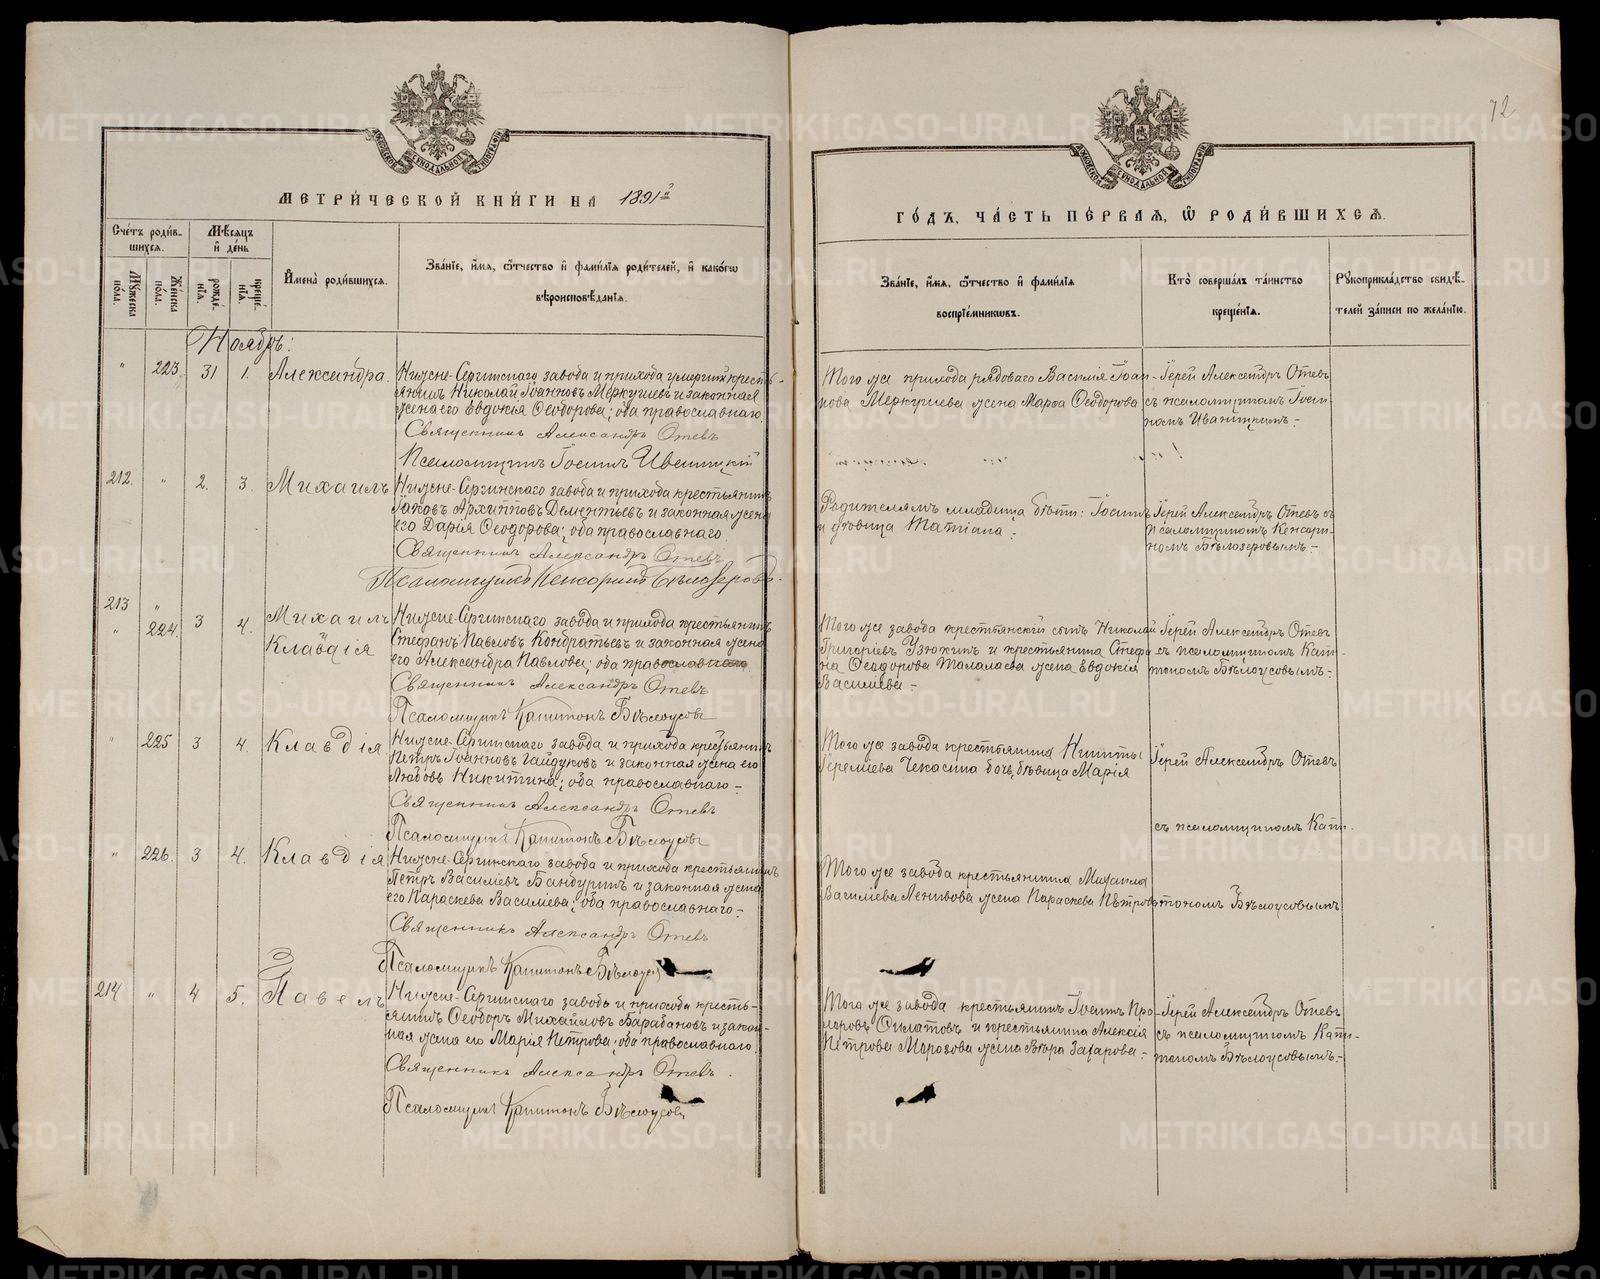 72
МЕТРИ́ЧЕСКОЙ КНИ́ГИ НА 1891й
ГО́ДЪ, ЧА́СТЬ ПЕ́РВАЯ, Ѿ РОДИ́ВШИХСЯ.
Сче́тъ роди́в-
шихся.
Мѣ́сяцъ
и҆ де́нь
Мꙋжеска
по́ла.
Же́нска
по́ла.
рожде-
нїѧ.
креще-
нїѧ.
И҆мена̀ роди́вшихся.
Зва́нїе, и҆́мѧ, ѻ҆́тчество и҆ фами́лїѧ роди́телей, и҆ како́гѡ
вѣроисповѣ́данїѧ.
Зва́нїе, и҆́мѧ, ѻ҆́тчество и҆ фами́лїѧ
воспрїе́мникѡвъ.
Кто̀ соверша́лъ та́инство
креще́нїѧ.
Рꙋкоприкла́дство свидѣ́-
телей за́писи по жела́нїю.
Ноябрь:
" 223. 31 1. Александра.
Нижне-Сергинскаго завода и прихода умершій кресть-
янинъ Николай Іоанновъ Меркушевъ и законная
жена его Евдокія Ѳеодорова; оба православнаго
Священникъ Александръ Отевъ
Псаломщикъ Іоаннъ Ивановъ
Того же прихода рядоваго Василія Іоан-
нова Меркушева жена Марѳа Ѳеодорова
Іерей Александръ Отевъ
съ псаломщикомъ Іоан-
номъ
212. " 2. 3. Михаилъ
Нижне-Сергинскаго завода и прихода крестьянинъ
Іаковъ Архипповъ Дементьевъ и законная жена
его Дарія Ѳеодорова; оба православнаго
Священникъ Александръ Отевъ
Псаломщикъ Кенсоринъ Бѣлозеровъ.
Родителямъ младенца дѣти: Іоаннъ
и дѣвица Татіана.-
Іерей Александръ Отевъ съ
псаломщикомъ Кенсори-
номъ Бѣлозеровымъ.-
213 " 3 4. Михаилъ
" 224. Клавдія
Нижне-Сергинскаго завода и прихода крестьянинъ
Стефанъ Павловъ Кондратьевъ и законная жена
его Александра Павлова; оба православнаго
Священникъ Александръ Отевъ
Псаломщикъ Капитонъ Бѣлоусовъ
Того же завода крестьянскій сынъ Николай
Григоріевъ Узюжинъ и крестьянина Стефа-
на Ѳеодорова Талалаева жена Евдокія
Василіева.-
Іерей Александръ Отевъ
съ псаломщикомъ Капи-
тономъ Бѣлоусовымъ.-
" 225 3 4. Клавдія
Нижне-Сергинскаго завода и прихода крестьянинъ
Петръ Іоанновъ Гайдуковъ и законная жена его
Любовь Никитина; оба православнаго.-
Священникъ Александръ Отевъ
Псаломщикъ Капитонъ Бѣлоусовъ
Того же завода крестьянина Никиты
Іереміева Чекасина дочь, дѣвица Марія
Іерей Александръ Отевъ
съ псаломщикомъ Капи-
" 226. 3 4. Клавдія
Нижне-Сергинскаго завода и прихода крестьянинъ
Петръ Василіевъ Бандуринъ и законная жена
его Параскева Василіева; оба православнаго.-
Священникъ Александръ Отевъ
Псаломщикъ Капитонъ Бѣлоусовъ
Того же завода крестьянина Михаила
Василіева Ленивова жена Параскева Петрова
тономъ Бѣлоусовымъ
214 " 4 5. Павелъ
Нижне-Сергинскаго завода и прихода кресть-
янинъ Ѳеодоръ Михайловъ Барабановъ и закон-
ная жена его Марія Петрова; оба православнаго.
Священникъ Александръ Отевъ.
Псаломщикъ Капитонъ Бѣлоусовъ
Того же завода крестьянинъ Іоаннъ Про-
хоровъ Филатовъ и крестьянина Алексія
Петрова Морозова жена Вѣра Захарова.-
Іерей Александръ Отевъ
съ псаломщикомъ Капи-
тономъ Бѣлоусовымъ.-
METRIKI.GASO-URAL.RU